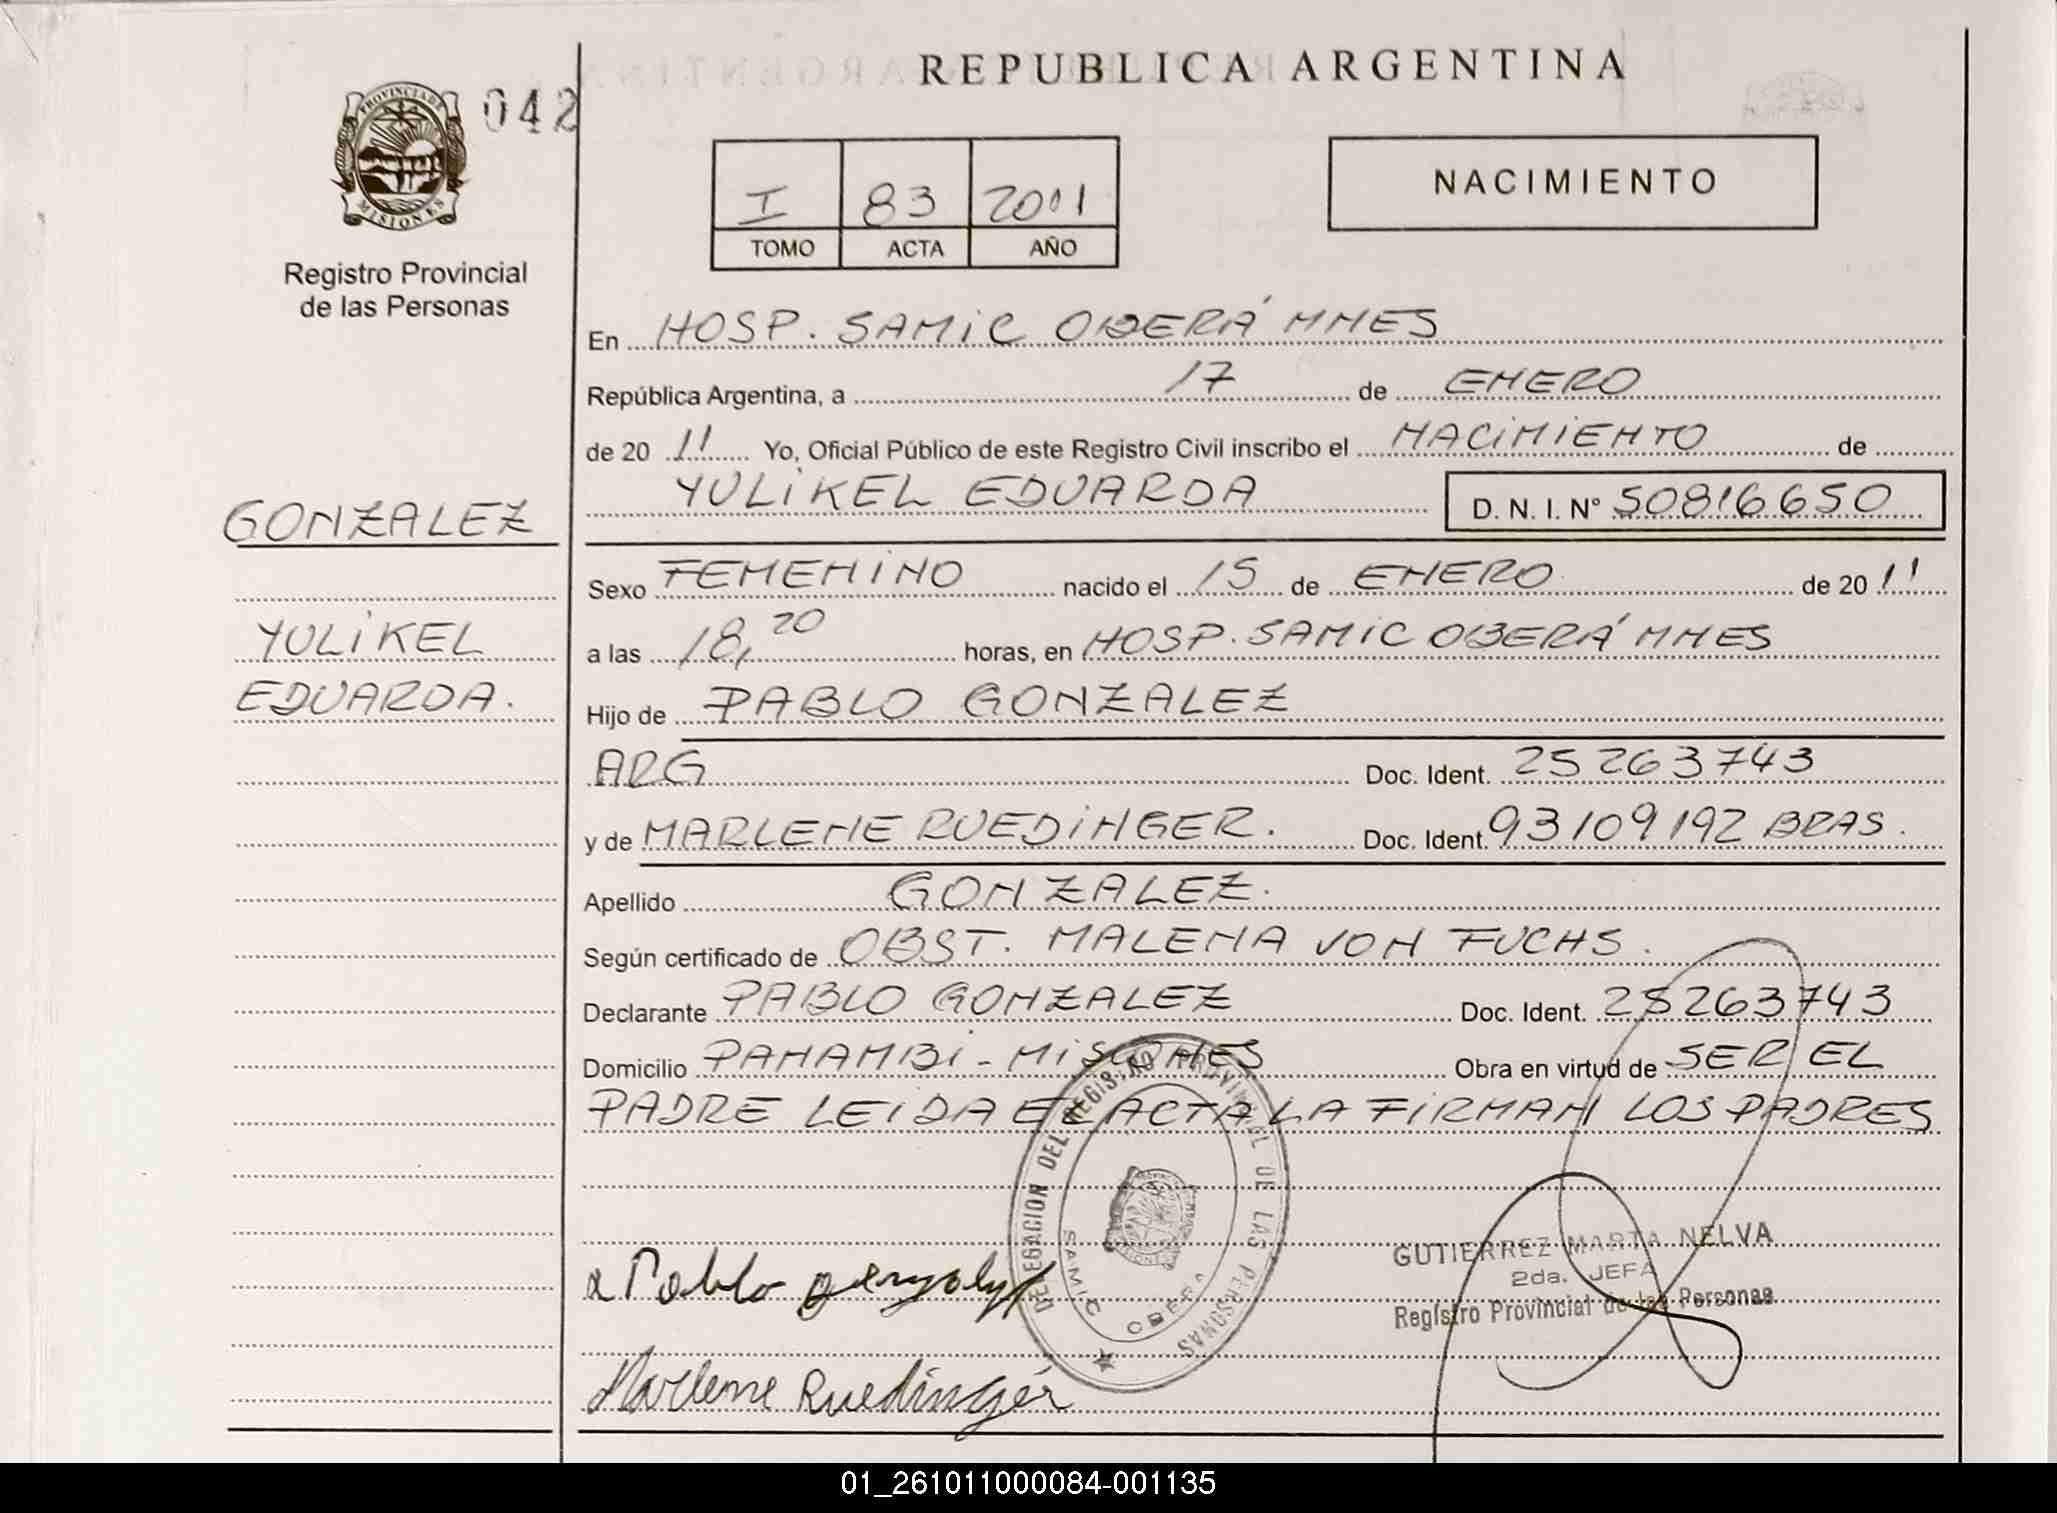 REPUBLICA ARGENTINA
PROVINCIA DE
MISIONES
042
Registro Provincial
de las Personas
I 83 2011
TOMO ACTA AÑO
NACIMIENTO
En HOSP. SAMIC OBERÁ MNES
República Argentina, a 17 de ENERO
de 20 11 Yo, Oficial Público de este Registro Civil inscribo el NACIMIENTO de
YULIKEL EDUARDA D. N. I. N° 50816650
GONZALEZ
YULIKEL
EDUARDA.
Sexo FEMENINO nacido el 15 de ENERO de 20 11
a las 18,20 horas, en HOSP. SAMIC OBERÁ MNES
Hijo de PABLO GONZALEZ
ARG Doc. Ident. 25263743
y de MARLENE RUEDINGER. Doc. Ident. 93109192 BRAS.
Apellido GONZALEZ.
Según certificado de OBST. MALENA VON FUCHS.
Declarante PABLO GONZALEZ Doc. Ident. 25263743
Domicilio PANAMBI - MISIONES Obra en virtud de SER EL
PADRE LEIDA EL ACTA LA FIRMAN LOS PADRES
DELEGACION DEL REGISTRO PROVINCIAL DE LAS PERSONAS
SAMIC OBERA
Pablo gonzalez
Marlene Ruedinger
GUTIERREZ MARTA NELVA
2da. JEFA
Registro Provincial de las Personas
01_261011000084-001135